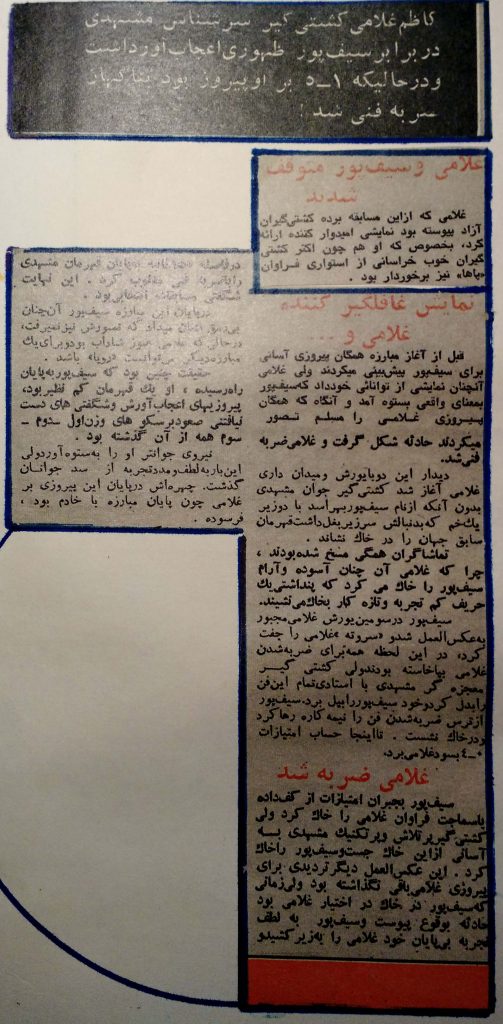 کاظم غلامی کشتی‌گیر سرشناس مشهدی
در برابر سیف‌پور ظهوری اعجاب‌آور داشت
و در حالیکه ۱ــ۵ بر او پیروز بود بناگهان
ضربه فنی شد !
غلامی و سیف‌پور متوقف
شدند
غلامی که از این مسابقه برده کشتی‌گیران
آزاد پیوسته بود نمایشی امیدوار کننده ارائه
کرد، بخصوص که او هم چون اکثر کشتی
گیران خوب خراسانی از استواری فراوان
«پاها» نیز برخوردار بود .
نمایش غافلگیر کننده
غلامی و ...
قبل از آغاز مبارزه همگان پیروزی آسانی
برای سیف‌پور پیش‌بینی میکردند ولی غلامی
آنچنان نمایشی از توانائی خود داد که سیف‌پور
بمعنای واقعی بستوه آمد و آنگاه که همگان
پیروزی غلامی را مسلم تصور
میکردند حادثه شکل گرفت و غلامی ضربه
فنی شد.
دیدار این دو با یورش و میدان داری
غلامی آغاز شد کشتی‌گیر جوان مشهدی
بدون آنکه از نام سیف‌پور بهراسد با دو زیر
یک‌خم که بدنبالش سرزیر بغل داشت قهرمان
سابق جهان را در خاک نشاند .
تماشاگران همگی مسخ شده بودند ،
چرا که غلامی آن چنان آسوده و آرام
سیف‌پور را خاک می کرد که پنداشتی یک
حریف کم تجربه و تازه کار بخاک می‌نشیند.
سیف‌پور در سومین یورش غلامی مجبور
به عکس‌العمل شد و «سروته» غلامی را جفت
کرد، در این لحظه همه برای ضربه شدن
غلامی بپاخاسته بودند ولی کشتی گیر
معجزه گر مشهدی با استادی تمام این فن
را بدل کرد و خود سیف‌پور را بپل برد. سیف‌پور
از ترس ضربه شدن فن را نیمه کاره رها کرد
و در خاک نشست . تا اینجا حساب امتیازات
۰ــ٤ بسود غلامی برد.
غلامی ضربه شد
سیف‌پور بجبران امتیازات از کف داده
با سماجت فراوان غلامی را خاک کرد ولی
کشتی‌گیر پرتلاش و پرتکنیک مشهدی به
آسانی از این خاک جست و سیف‌پور را خاک
کرد . این عکس‌العمل دیگر تردیدی برای
پیروزی غلامی باقی نگذاشته بود ولی زمانی
که سیف‌پور در خاک در اختیار غلامی بود
حادثه بوقوع پیوست و سیف‌پور به لطف
تجربه بی‌پایان خود غلامی را به زیر کشید و
در فاصله ثانیه به پایان قهرمان مشهدی
را با ضربه فنی مغلوب کرد . این نهایت
شگفتی مسابقات انتخابی بود .
در پایان این مبارزه سیف‌پور آن‌چنان
بی‌رمق نشان میداد که تصورش نیز نمیرفت،
درحالی که غلامی هنوز شاداب بود و برای یک
مبارزه دیگر می‌توانست «روپا» باشد .
حقیقت چنین بود که سیف‌پور به پایان
راه رسیده ، او یک قهرمان کم نظیر بود،
پیروزیهای اعجاب‌آورش و شگفتی های دست
نیافتنی صعود بر سکو های وزن اول – دوم –
سوم همه از آن گذشته بود .
نیروی جوانش او را به ستوه آورد ولی
این بار به لطف و مدد تجربه از سد جوانان
گذشت. چهره‌اش در پایان این پیروزی بر
غلامی چون پایان مبارزه با خادم بود ،
فرسوده .